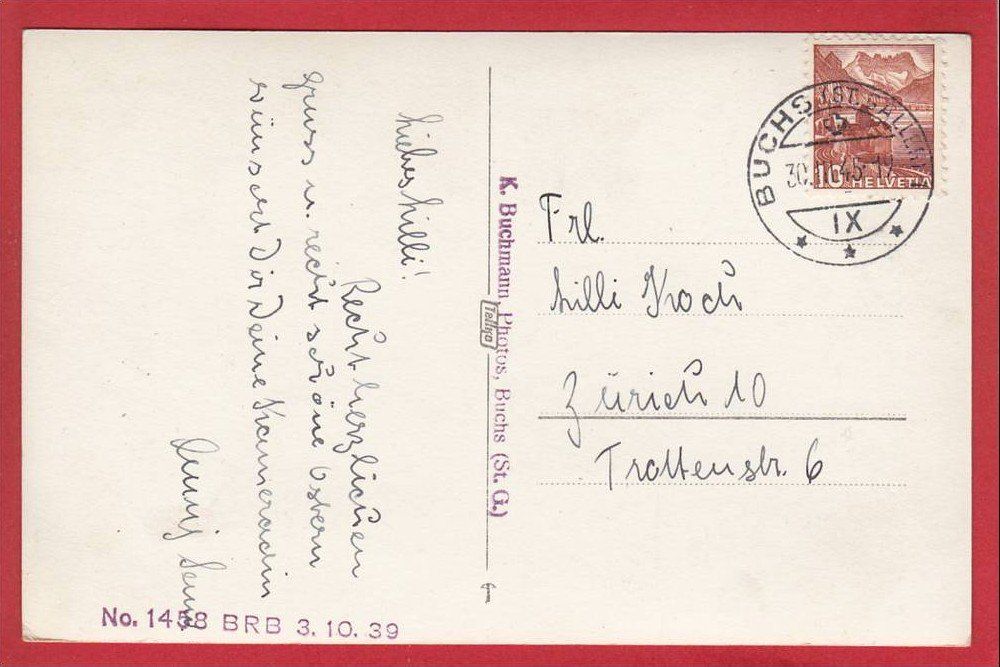 Liebes Lilli!
Recht herzlichen
Gruss u. recht schöne Ostern
wünscht Dir Deine Kameradin
K. Buchmann, Photos, Buchs (St. G.)
Tellko
BUCHS (ST. GALLEN)
IX
10 HELVETIA
Frl.
Lilli Koch
Zürich 10
Trottenstr. 6
No. 1458 BRB 3.10.39